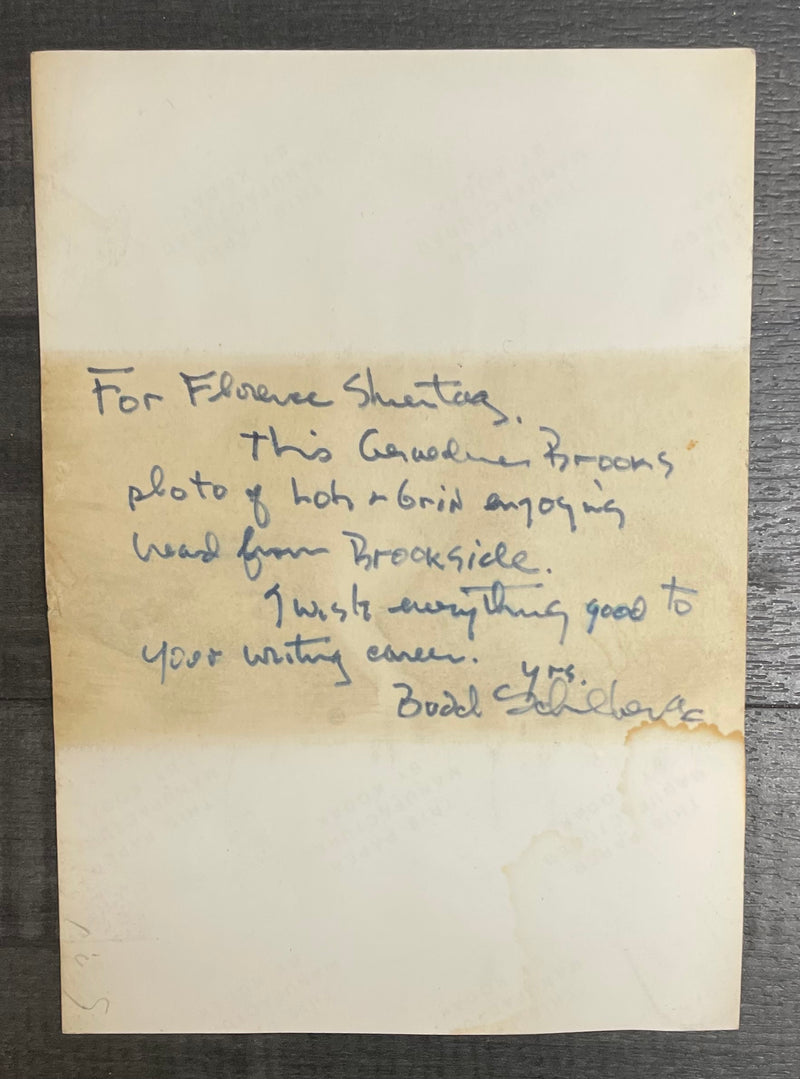 For Florence Shientag.
This Geraldine Brooks
photo of enjoying
from Brookside.
I wish everything good to
your writing career.
yrs.
Budd Schulberg
THIS PAPER
MANUFACTURED
BY KODAK